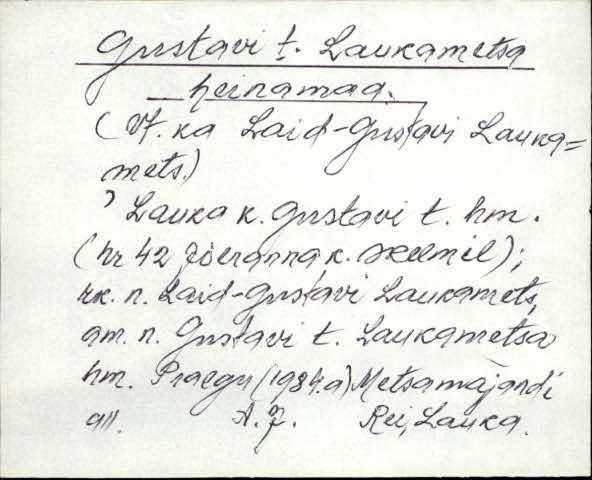 Gustavi t. Laukametsa
heinamaa.
(Vt. ka Laid-Gustavi Lauka=
mets.)
Lauka k. Gustavi t. hm.
(hr 42 Jõeranna k. skeemil);
rk. n. Laid-Gustavi Laukamets,
am. n. Gustavi t. Laukametsa
hm. Praegu (1984.a) Metsamajandi
all. A. J. Rei, Lauka.